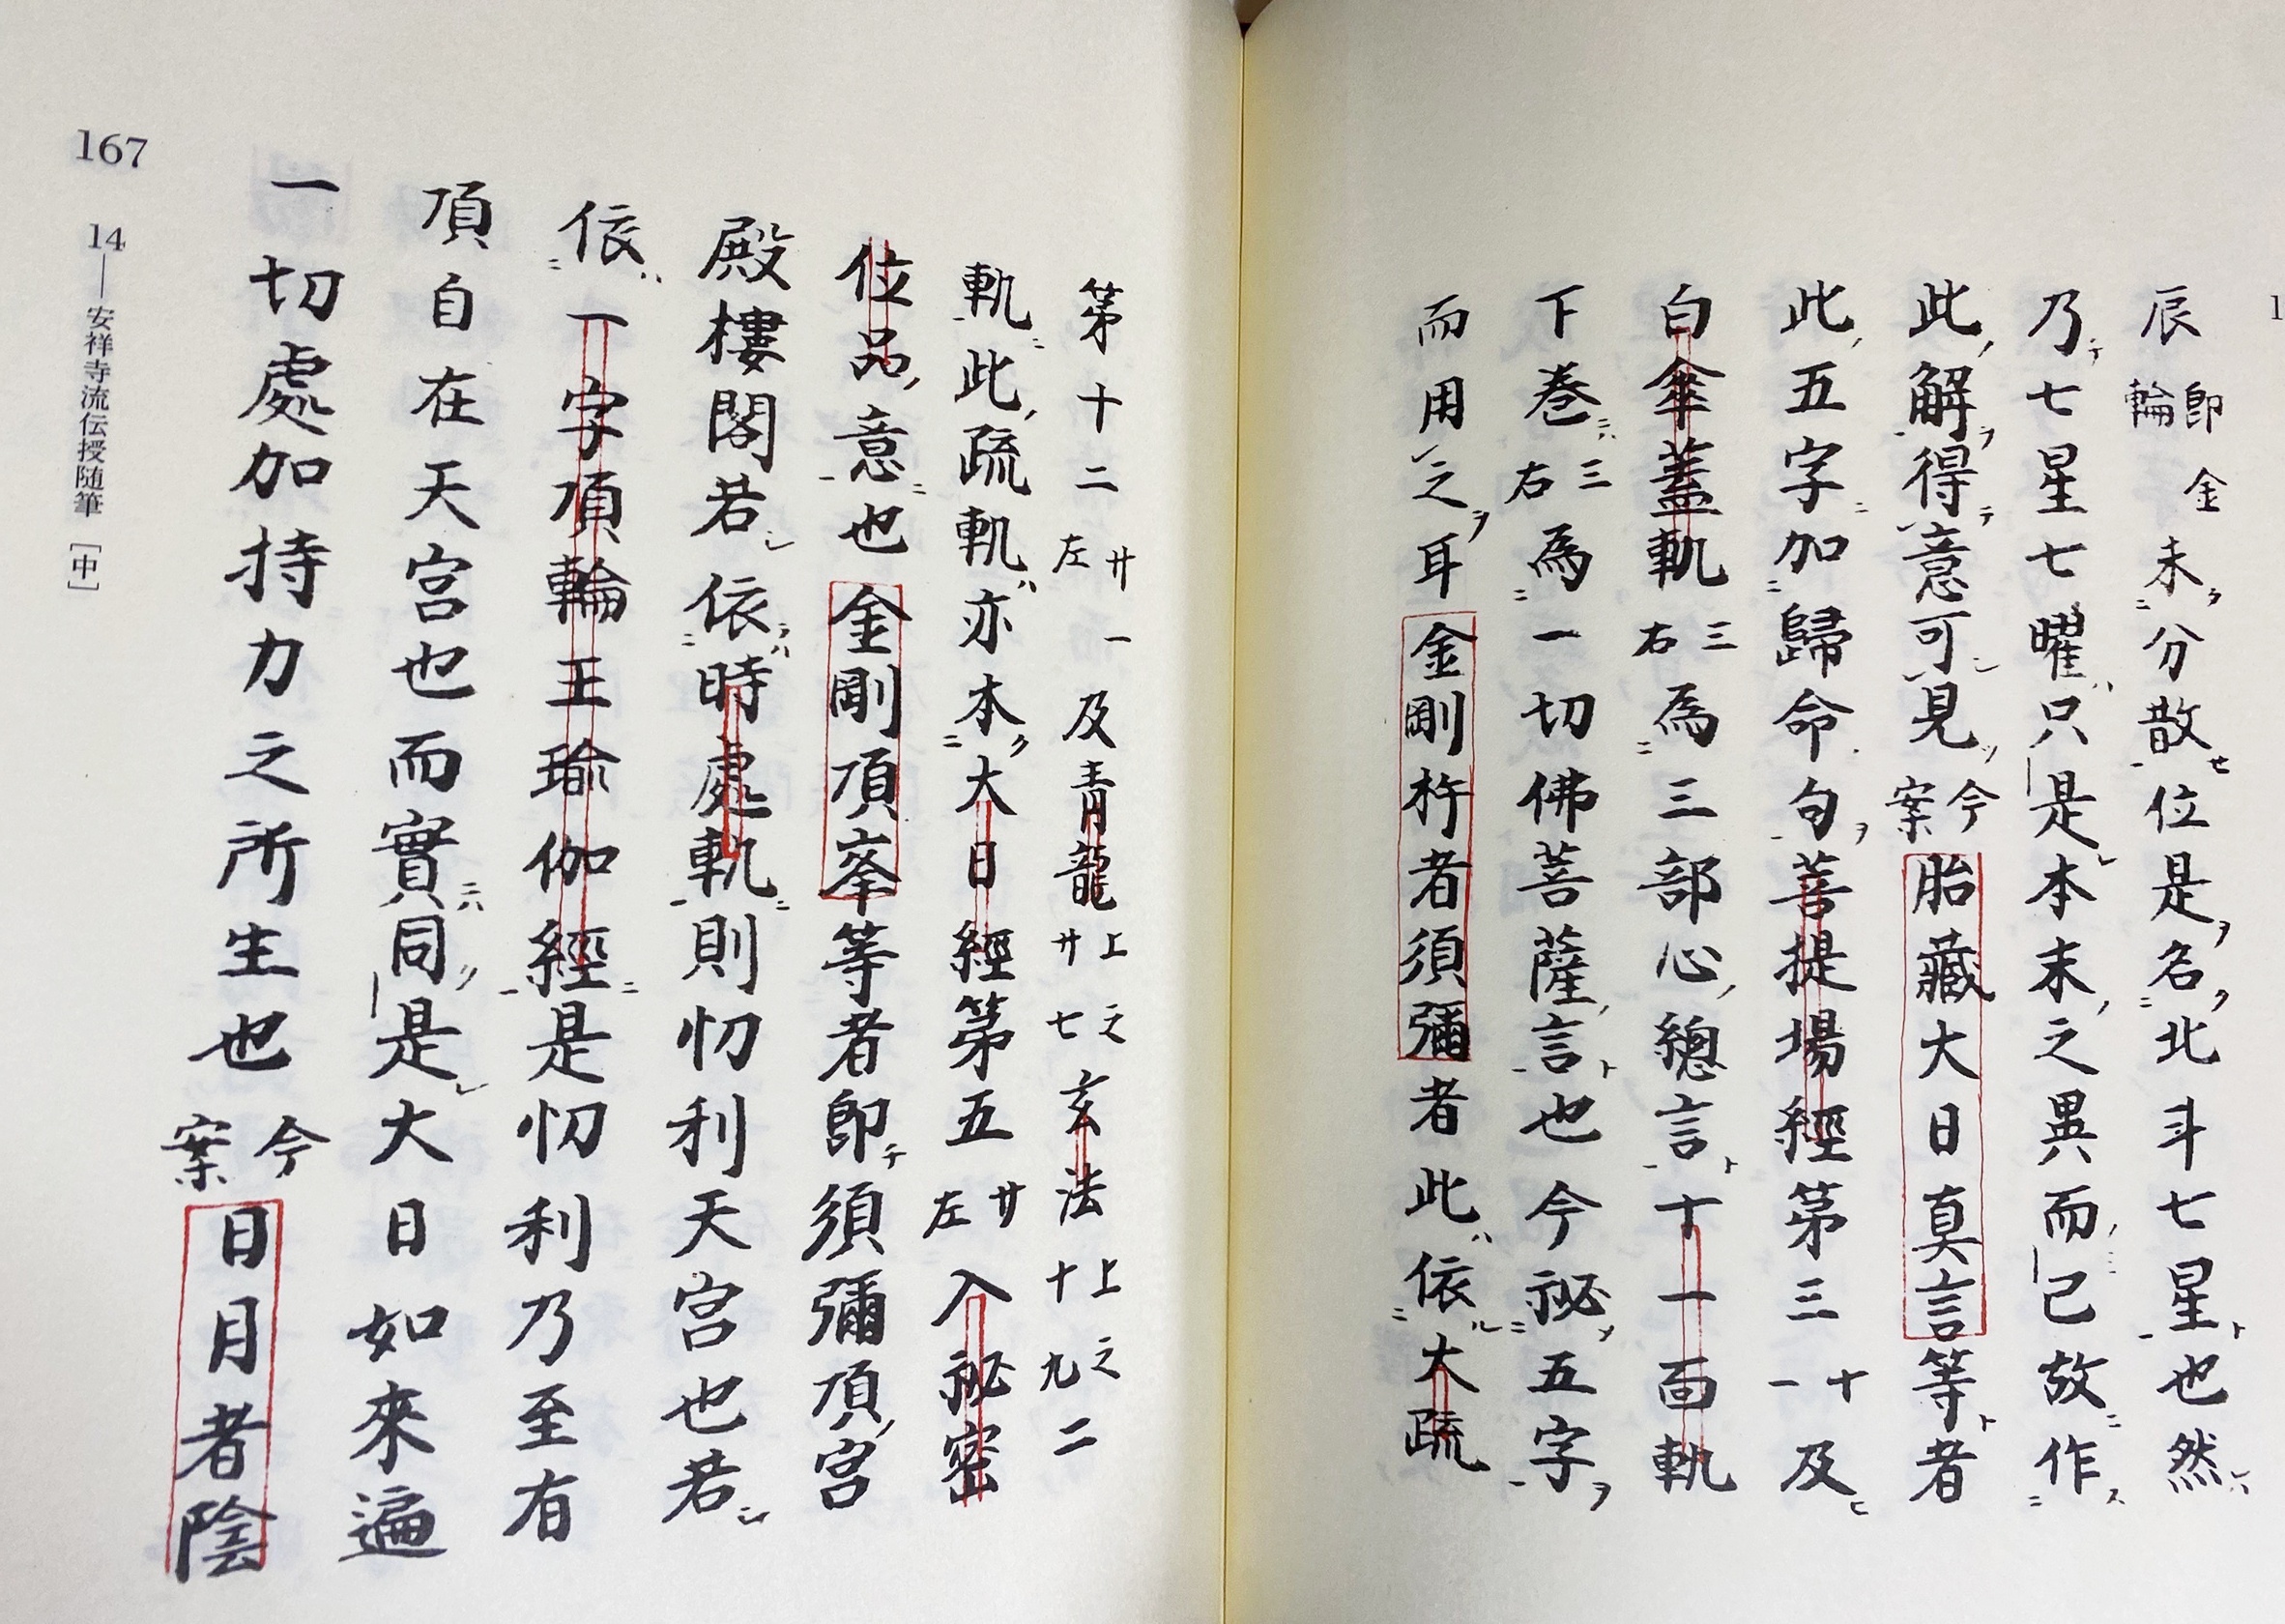 辰即金輪未分散位是名北斗七星也然
乃七星七曜只是本末之異而已故作
此解得意可見今案胎藏大日真言等者
此五字加歸命句菩提場經第三十一及
白傘蓋軌三右為三部心總言十一面軌
下巻三右為一切佛菩薩言也今祕五字
而用之耳金剛杵者須彌者此依大疏
第十二廿一左及青龍上之廿七玄法上之十九二
軌此疏軌亦本大日經第五廿左入祕密
位品意也金剛頂峯等者即須彌頂宮
殿樓閣若依時處軌則忉利天宮也若
依一字頂輪王瑜伽經是忉利乃至有
頂自在天宮也而實同是大日如來遍
一切處加持力之所生也今案日月者陰
167
14―安祥寺流伝授随筆［中］